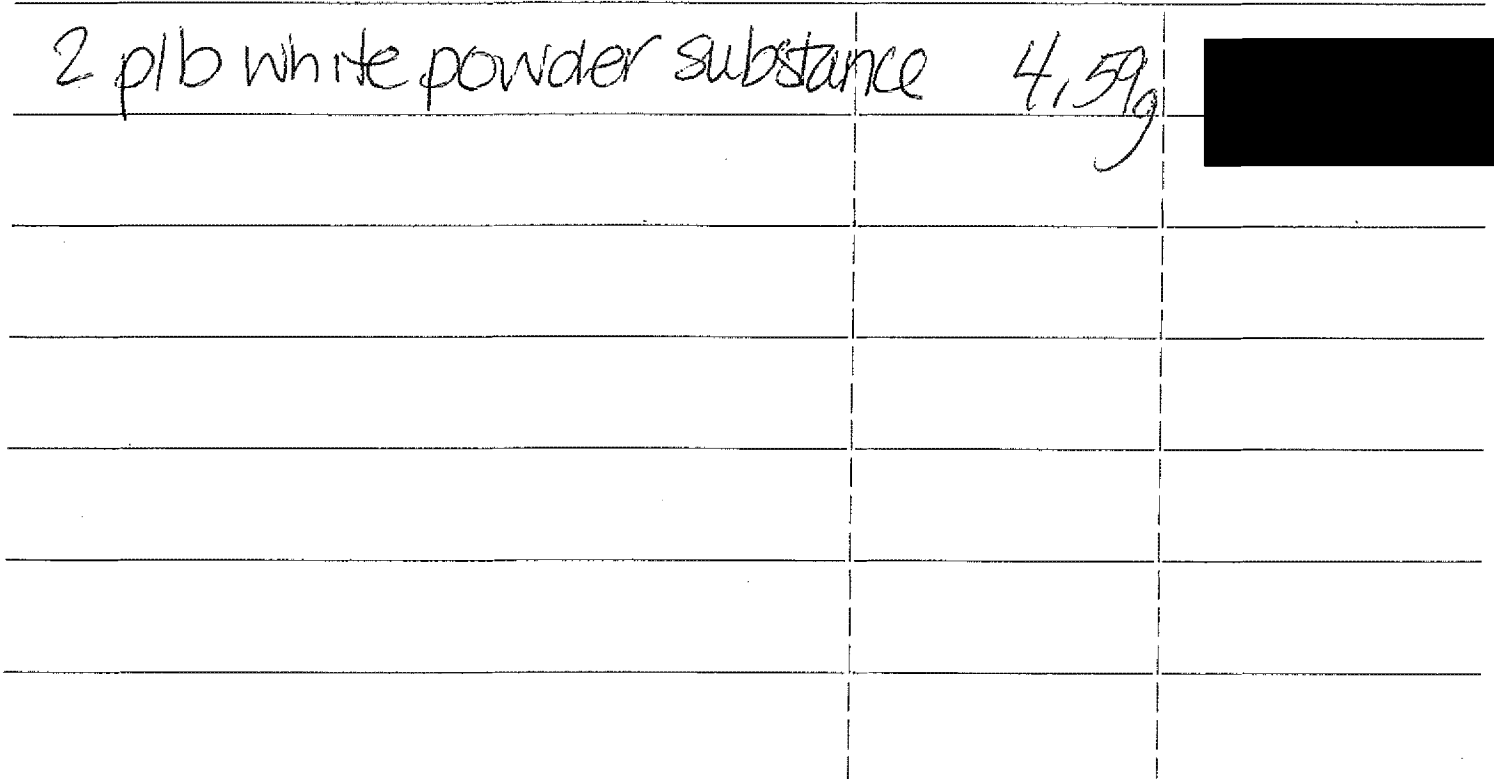 2 p/b white powder substance 4.59g